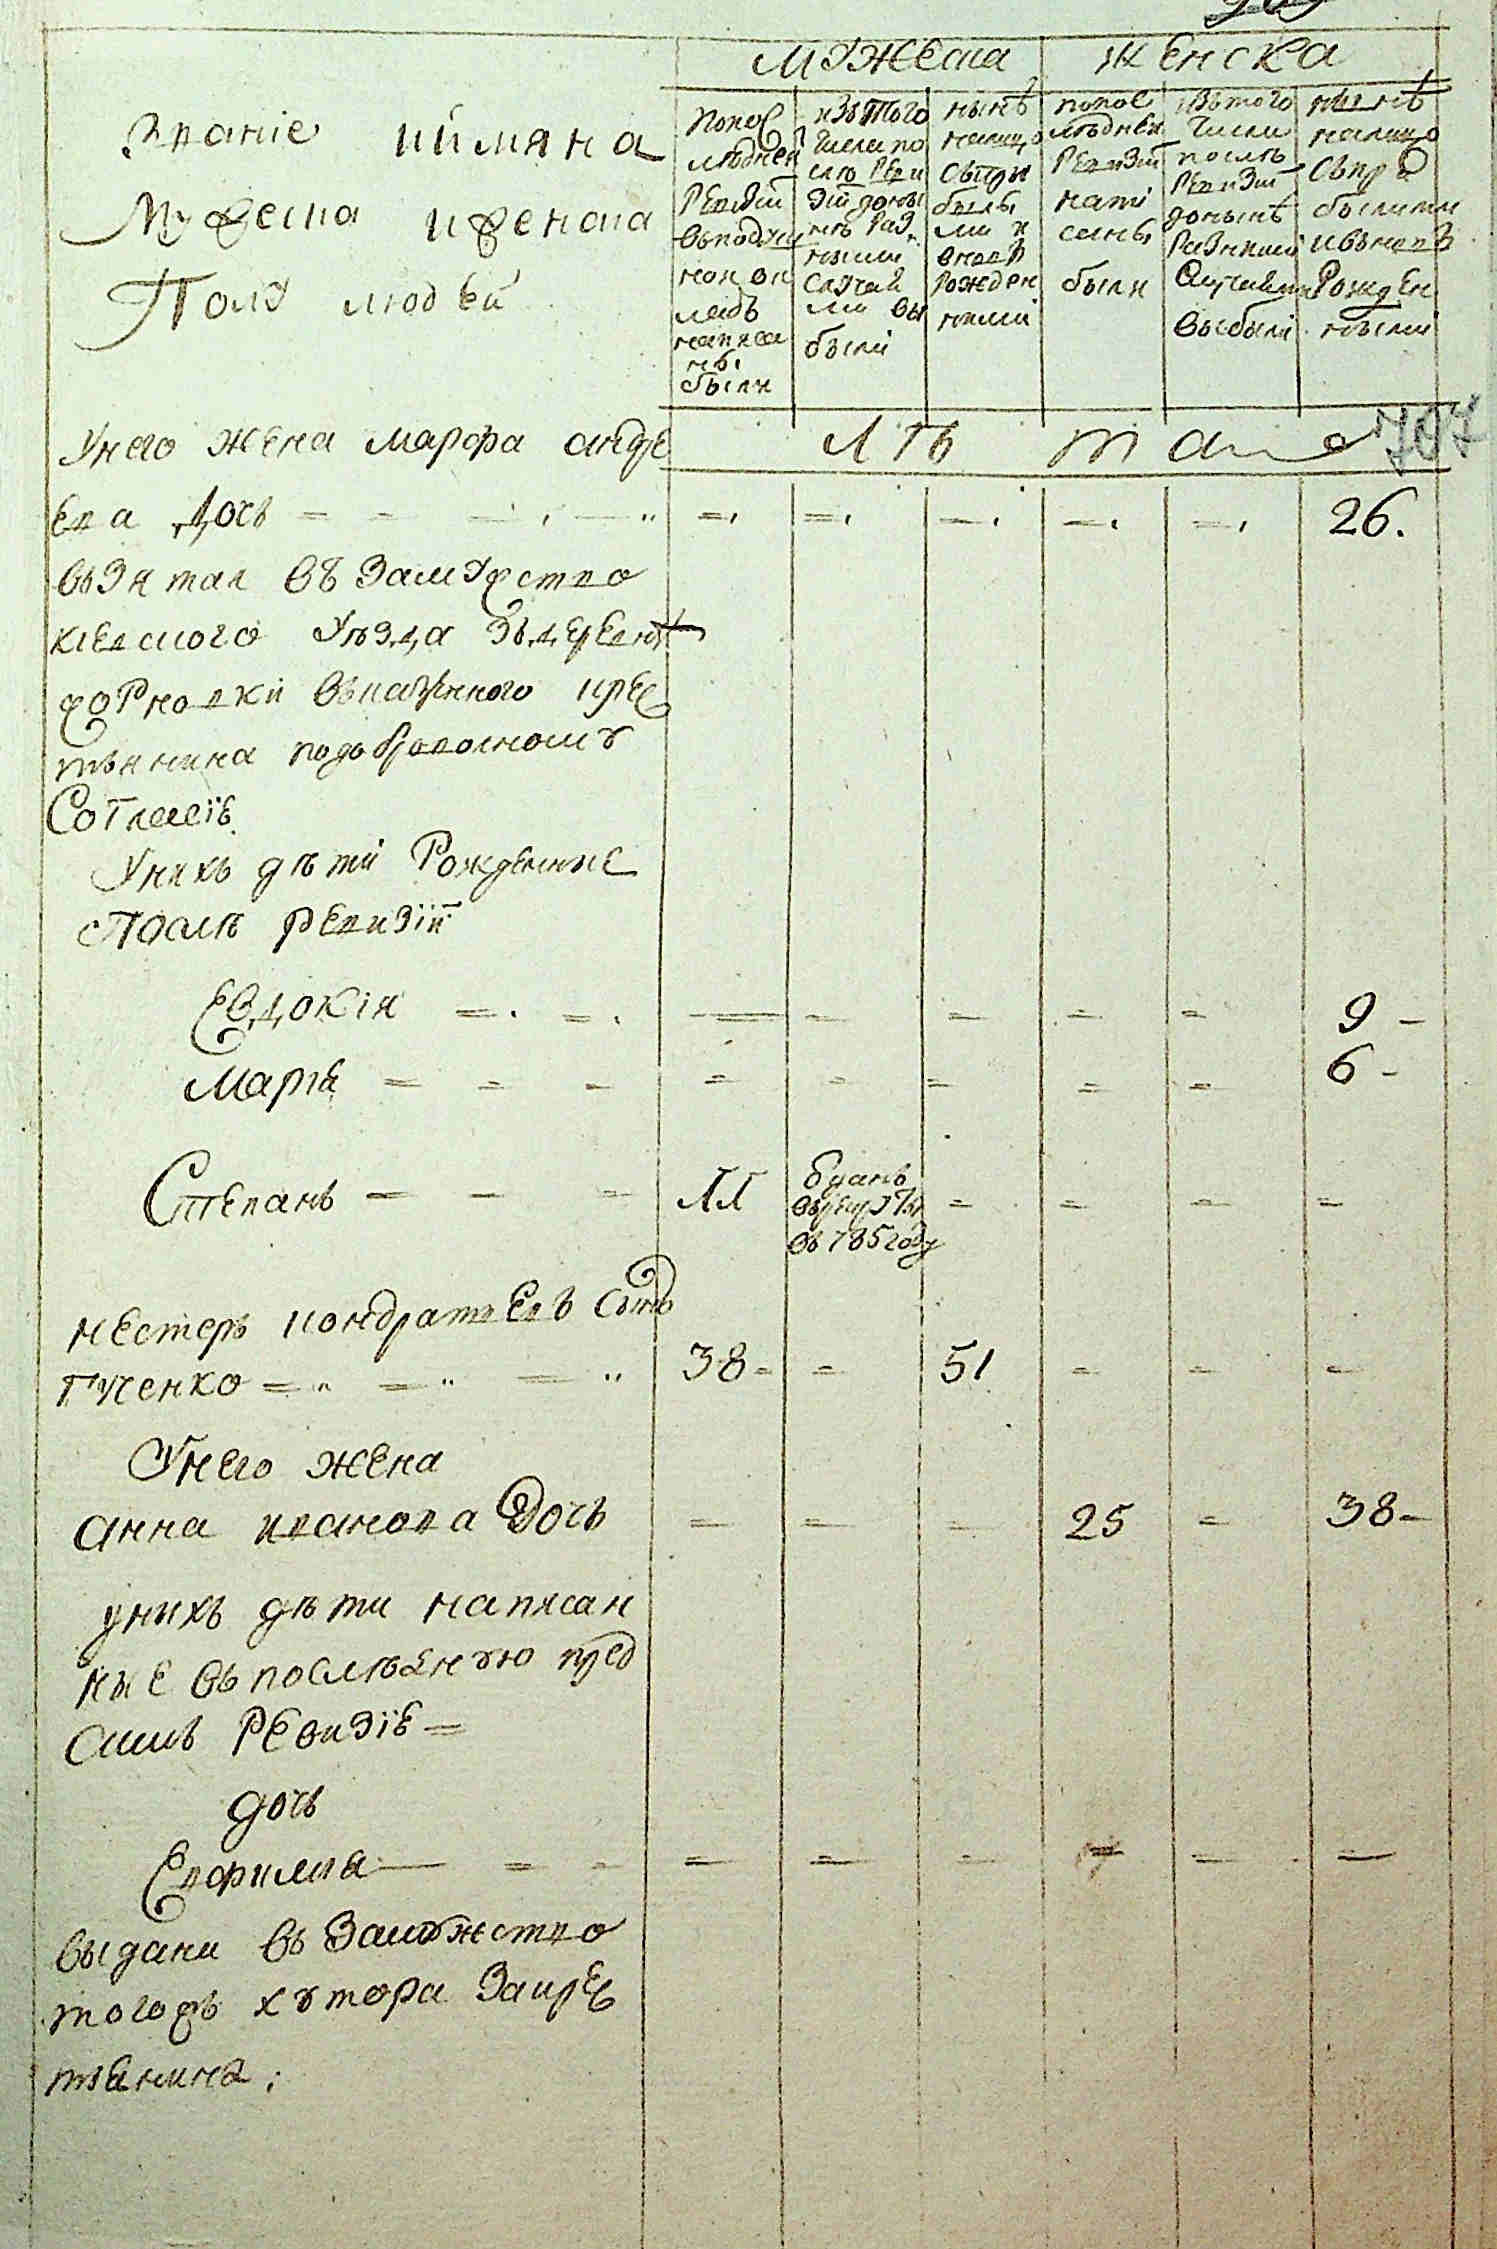 мужеска женска
Звание ии имяна
Мужеска иженска
Полу людей
попос
ледней
Ревизіи
вподуш
ной ок
ладъ
написа
ны
были
изътого
числа по
слѣ Реви
зіи доны
нѣ раз
ными
случая
ми вы
были
нынѣ
налицо
съпри
былы
ми и
вновь
рожден
ными
попос
лѣдней
Ревизіи
напи
саны
были
изтого
числа
послѣ
Ревизіи
донынѣ
разными
случаями
выбыли
нынѣ
налицо
съпри
былыми
ивновъ
Рожден
ными
лѣ та 707
Унего жена марфа андре
ева дочь 26.
взятая въ замужество
киевского уѣзда здеревни
жорновки въказенного крес
тьянина подобровольному
Согласіе
Унихъ дѣти Рожденные
послѣ ревизіи
Евдокія 9
Марія 6
Степанъ 11 отданъ
въ рекруты
въ 785 году
нестеръ кондратьевъ сынъ
Гученко 38 51
Унего жена
анна иванова дочь 25 38
унихъ дѣти написан
ные въ послѣднюю пред
симъ Ревизіе
дочь
Евфимиа
выдана въ замужство
тогожъ хутора закрес
тянина